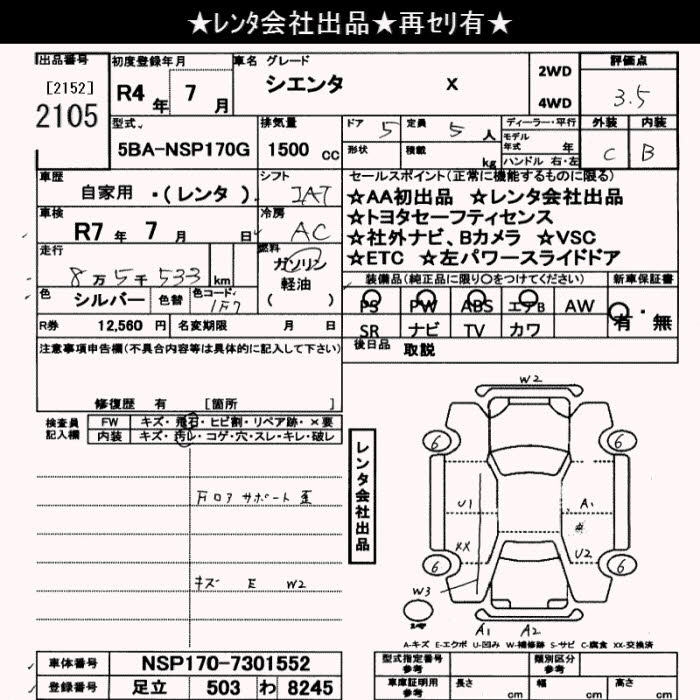 ★レンタ会社出品★再セリ有★
出品番号 初度登録年月 車名 グレード 評価点
[2152] R4年 7月 シエンタ X 2WD 3.5
2105 4WD
型式 排気量 ドア 5 定員 5人 ディーラー・平行 外装 内装
5BA-NSP170G 1500cc 形状 積載 kg モデル年式 年 C B
ハンドル 右・左
車歴 シフト セールスポイント(正常に機能するものに限る)
自家用 ・(レンタ) IAT ☆AA初出品 ☆レンタ会社出品
☆トヨタセーフティセンス
車検 冷房 ☆社外ナビ、Bカメラ ☆VSC
R7年 7月 日 AC ☆ETC ☆左パワースライドドア
走行 燃料
8万5千533km ガソリン 軽油 ( ) 装備品(純正品に限り○をつけてください) 新車保証書
色 シルバー 色替 色コード 1F7 PS PW ABS エアB AW 有・無
R券 12,560 円 名変期限 月 日 SR ナビ TV カワ
注意事項申告欄(不具合内容等は具体的に記入して下さい) 後日品 取説
修復歴 有 [箇所 ]
検査員記入欄 FW キズ・飛石・ヒビ割・リペア跡・×要
内装 キズ・汚レ・コゲ・穴・スレ・キレ・破レ
レンタ会社出品
サポート 歪
キズ E W2
W2
6 6
U1 A1
XX U2
6 6
W3
A1 A2
A-キズ E-エクボ U-凹み W-補修跡 S-サビ C-腐食 XX-交換済
車体番号 NSP170-7301552 型式指定番号 参考 類別区分 参考
登録番号 足立 503 わ 8245 車庫証明用 参考 長さ cm 幅 cm 高さ cm